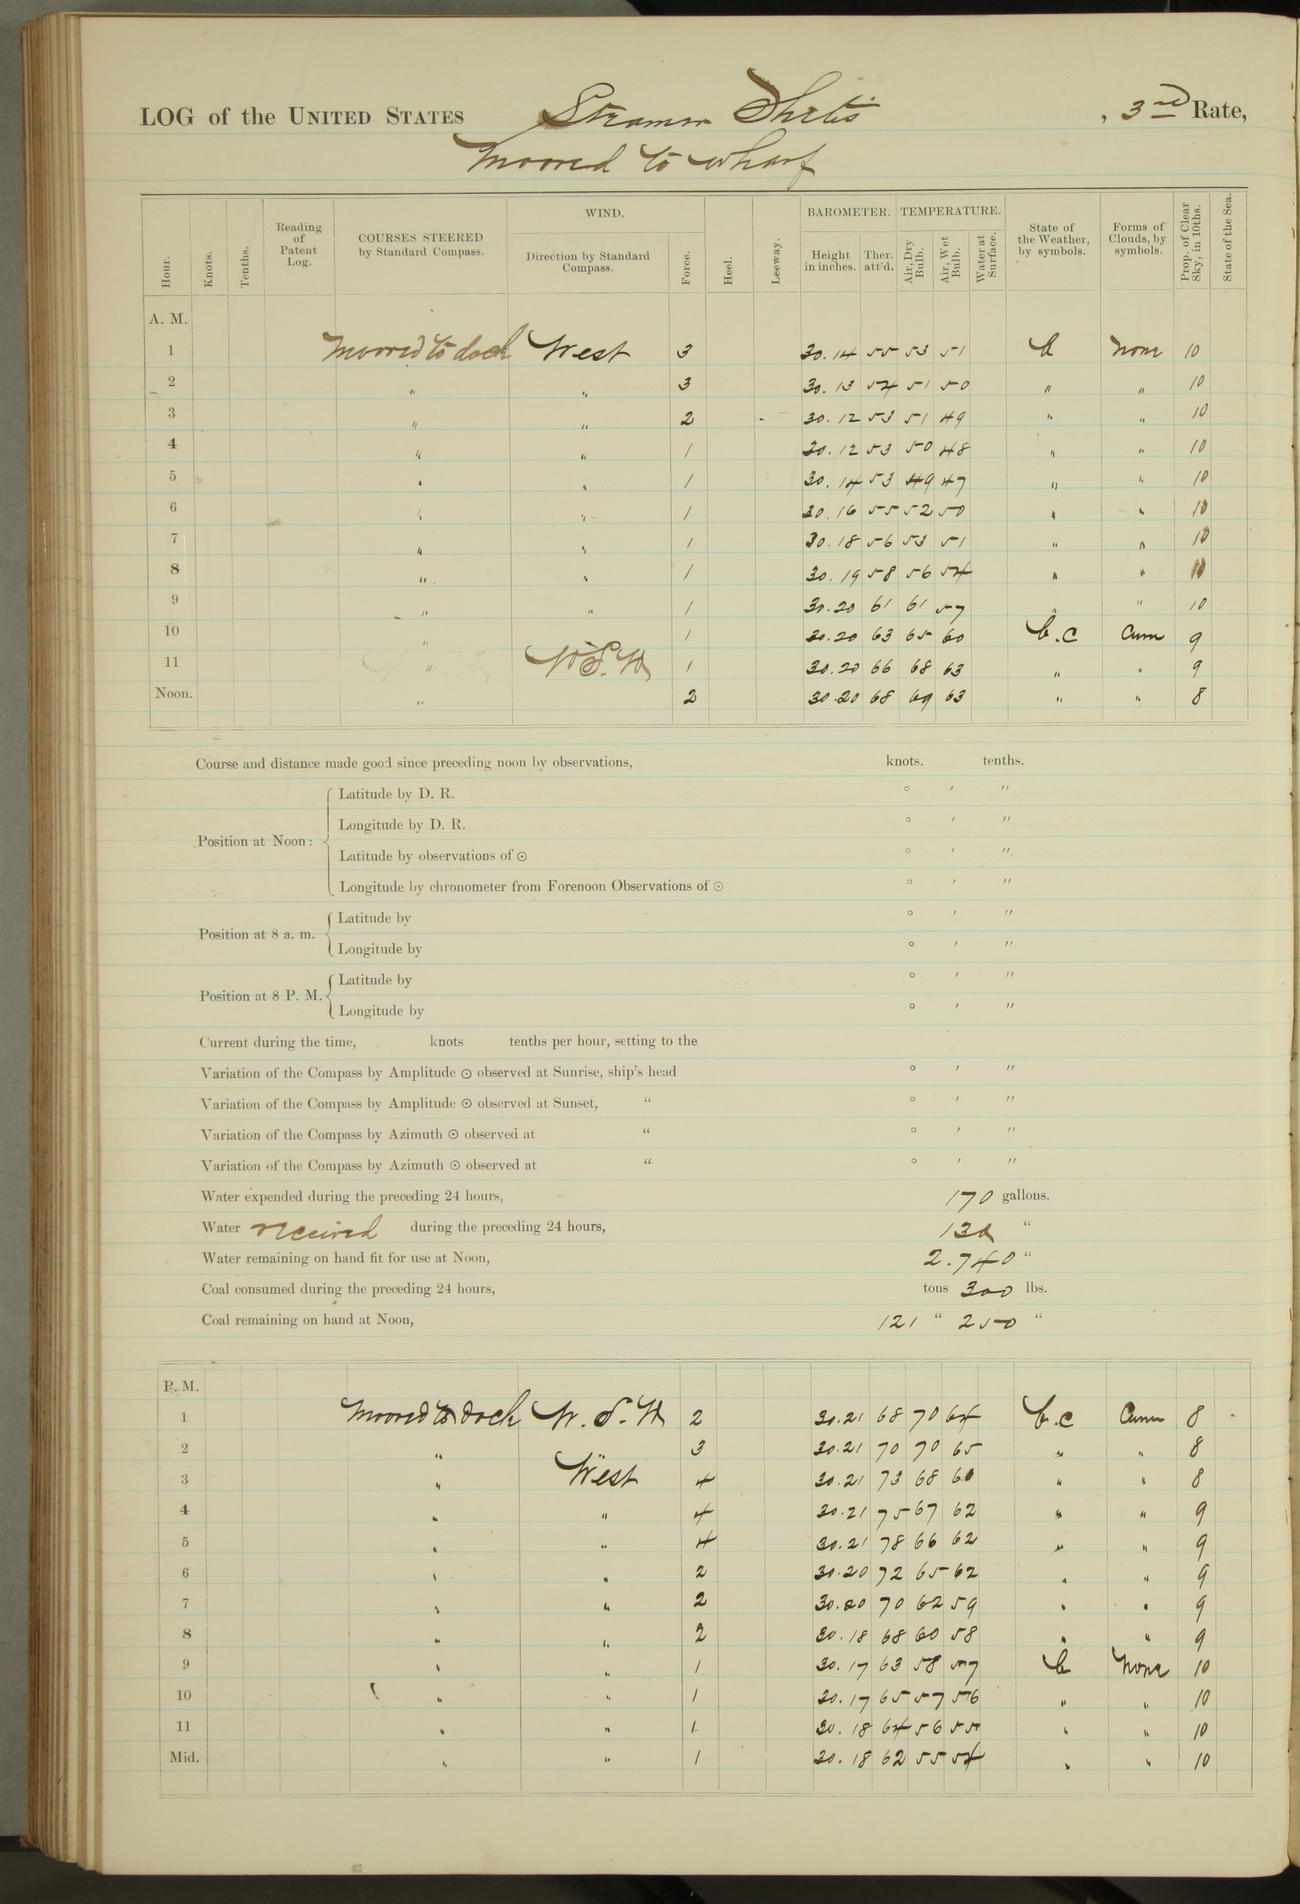 LOG of the UNITED STATES Steamer Thetis, 3rd Rate,
Moored to wharf
WIND. BAROMETER. TEMPERATURE.
Hour. Knots. Tenths. Reading of Patent Log. COURSES STEERED by Standard Compass. Direction by Standard Compass. Force. Heel. Leeway. Height in inches. Ther. att'd. Air, Dry Bulb. Air, Wet Bulb. Water at Surface. State of the Weather, by symbols. Forms of Clouds, by symbols. Prop. of Clear Sky, in 10ths. State of the Sea.
A. M.
1 Moored to dock West 3 30.14 55 53 51 b none 10
2 " " 3 30.13 54 51 50 " " 10
3 " " 2 30.12 53 51 49 " " 10
4 " " 1 30.12 53 50 48 " " 10
5 " " 1 30.14 53 49 47 " " 10
6 " " 1 30.16 55 52 50 " " 10
7 " " 1 30.18 56 53 51 " " 10
8 " " 1 30.19 58 56 54 " " 10
9 " " 1 30.20 61 61 57 " " 10
10 " 1 30.20 63 65 60 b.c Cum 9
11 " W.S.W 1 30.20 66 68 63 " " 9
Noon. " 2 30.20 68 69 63 " " 8
Course and distance made good since preceding noon by observations, knots. tenths.
Latitude by D. R. ° ′ ″
Longitude by D. R. ° ′ ″
Position at Noon:
Latitude by observations of ⊙ ° ′ ″
Longitude by chronometer from Forenoon Observations of ⊙ ° ′ ″
Latitude by ° ′ ″
Position at 8 a. m.
Longitude by ° ′ ″
Latitude by ° ′ ″
Position at 8 P. M.
Longitude by ° ′ ″
Current during the time, knots tenths per hour, setting to the
Variation of the Compass by Amplitude ⊙ observed at Sunrise, ship's head ° ′ ″
Variation of the Compass by Amplitude ⊙ observed at Sunset, " ° ′ ″
Variation of the Compass by Azimuth ⊙ observed at " ° ′ ″
Variation of the Compass by Azimuth ⊙ observed at " ° ′ ″
Water expended during the preceding 24 hours, 170 gallons.
Water received during the preceding 24 hours, "
Water remaining on hand fit for use at Noon, 2.740 "
Coal consumed during the preceding 24 hours, tons 300 lbs.
Coal remaining on hand at Noon, 121 " 250 "
P. M.
1 Moored to dock W.S.W 2 30.21 68 70 64 b.c Cum 8
2 " " 3 30.21 70 70 65 " " 8
3 " West 4 30.21 73 68 60 " " 8
4 " " 4 30.21 75 67 62 " " 9
5 " " 4 30.21 78 66 62 " " 9
6 " " 2 30.20 72 65 62 " " 9
7 " " 2 30.20 70 62 59 " " 9
8 " " 2 30.18 68 60 58 " " 9
9 " " 1 30.17 63 58 57 b None 10
10 " " 1 30.17 65 57 56 " " 10
11 " " 1 30.18 64 56 55 " " 10
Mid. " " 1 30.18 62 55 54 " " 10